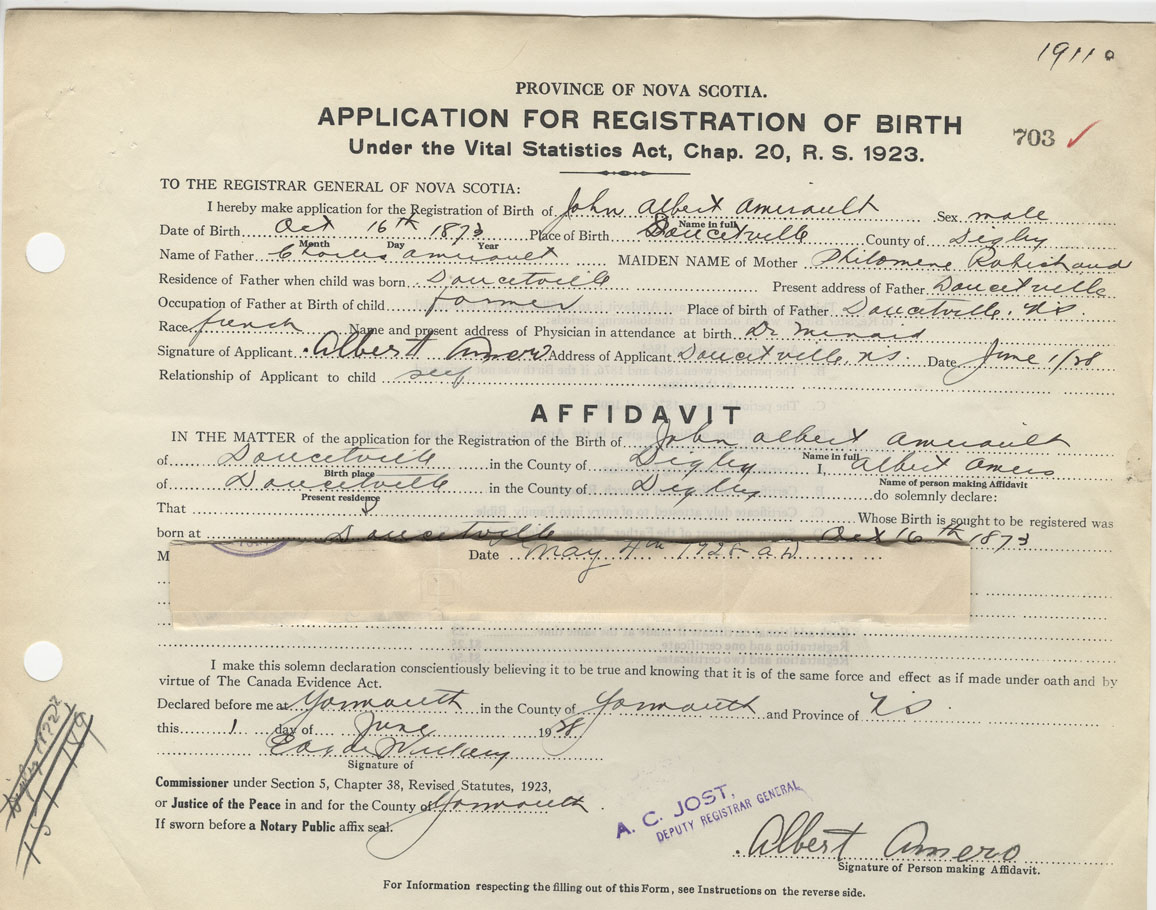 1911
PROVINCE OF NOVA SCOTIA.
APPLICATION FOR REGISTRATION OF BIRTH
703
Under the Vital Statistics Act, Chap. 20, R. S. 1923.
TO THE REGISTRAR GENERAL OF NOVA SCOTIA:
I hereby make application for the Registration of Birth of John Albert Amirault Sex male
Name in full
Date of Birth Oct 16th 1873 Place of Birth Doucetville County of Digby
Month Day Year
Name of Father Charles Amirault MAIDEN NAME of Mother Philomene Robichaud
Residence of Father when child was born Doucetville Present address of Father Doucetville
Occupation of Father at Birth of child farmer Place of birth of Father Doucetville. N.S.
Race french Name and present address of Physician in attendance at birth Dr
Signature of Applicant Albert Amero Address of Applicant Doucetville, N.S. Date June 1/28
Relationship of Applicant to child self
AFFIDAVIT
IN THE MATTER of the application for the Registration of the Birth of John Albert Amirault
Name in full
of Doucetville in the County of Digby I, Albert Amero
Birth place Name of person making Affidavit
of Doucetville in the County of Digby do solemnly declare:
Present residence
That I Whose Birth is sought to be registered was
born at Doucetville Oct 16th 1873
M Date May 4th 1928 A.D.
I make this solemn declaration conscientiously believing it to be true and knowing that it is of the same force and effect as if made under oath and by
virtue of The Canada Evidence Act.
Declared before me at Yarmouth in the County of Yarmouth and Province of N.S.
this 1 day of June 1928
Signature of
Commissioner under Section 5, Chapter 38, Revised Statutes, 1923,
or Justice of the Peace in and for the County of Yarmouth.
If sworn before a Notary Public affix seal.
A. C. JOST,
DEPUTY REGISTRAR GENERAL
Albert Amero
Signature of Person making Affidavit.
For Information respecting the filling out of this Form, see Instructions on the reverse side.